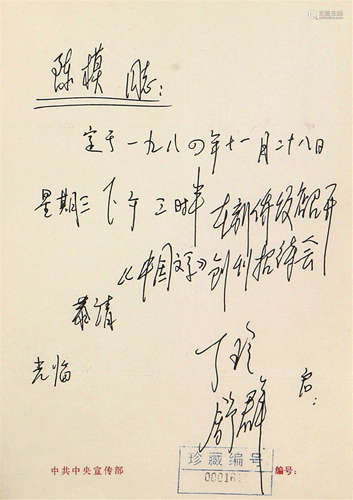 陈模 同志：
定于一九八四年十一月二十八日
星期三下午三时半在新侨饭店召开
《中国文学》创刊招待会
恭请
光临
丁玲
舒群 启：
珍藏编号
000161
中共中央宣传部
编号：